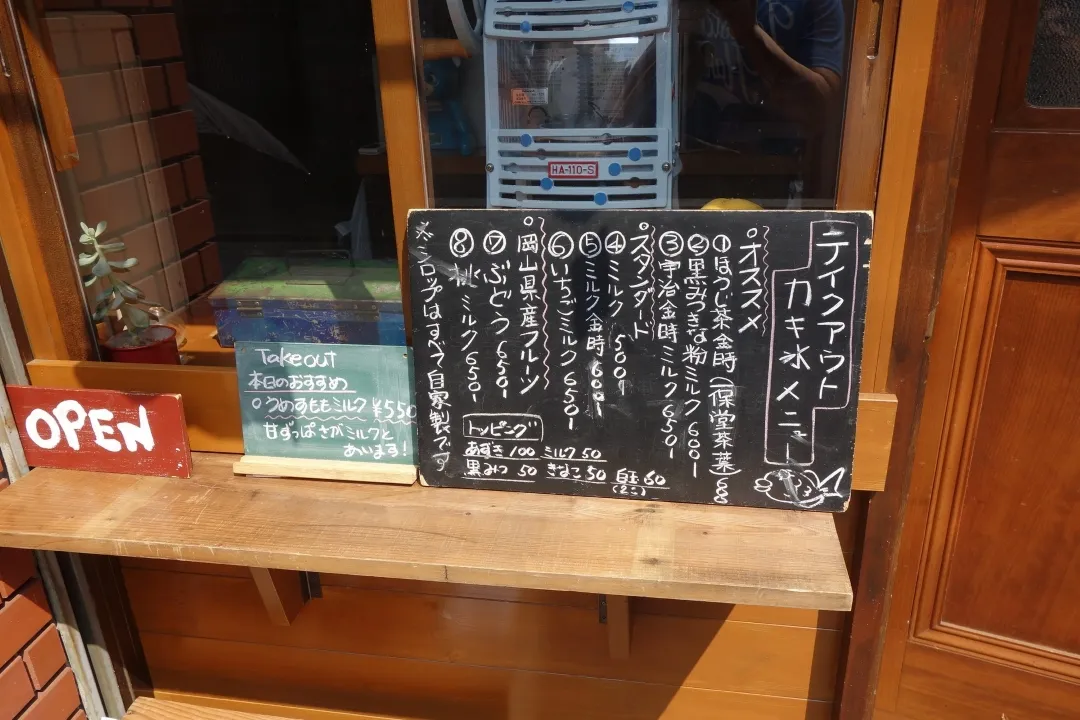 HA-110-S
テイクアウト
カキ氷メニュー
オススメ
①ほうじ茶金時(一保堂茶葉)
②黒みつきな粉ミルク 600-
③宇治金時ミルク 650-
スタンダード
④ミルク 500-
⑤ミルク金時 600-
⑥いちごミルク 650-
岡山県産フルーツ
⑦ぶどう 650-
⑧桃ミルク 650-
※シロップはすべて自家製です
トッピング
あずき 100 ミルク 50
黒みつ 50 きなこ 50 白玉 60
(2こ)
Takeout
本日のおすすめ
○うめすももミルク ¥550
甘ずっぱさがミルクと
あいます!
OPEN